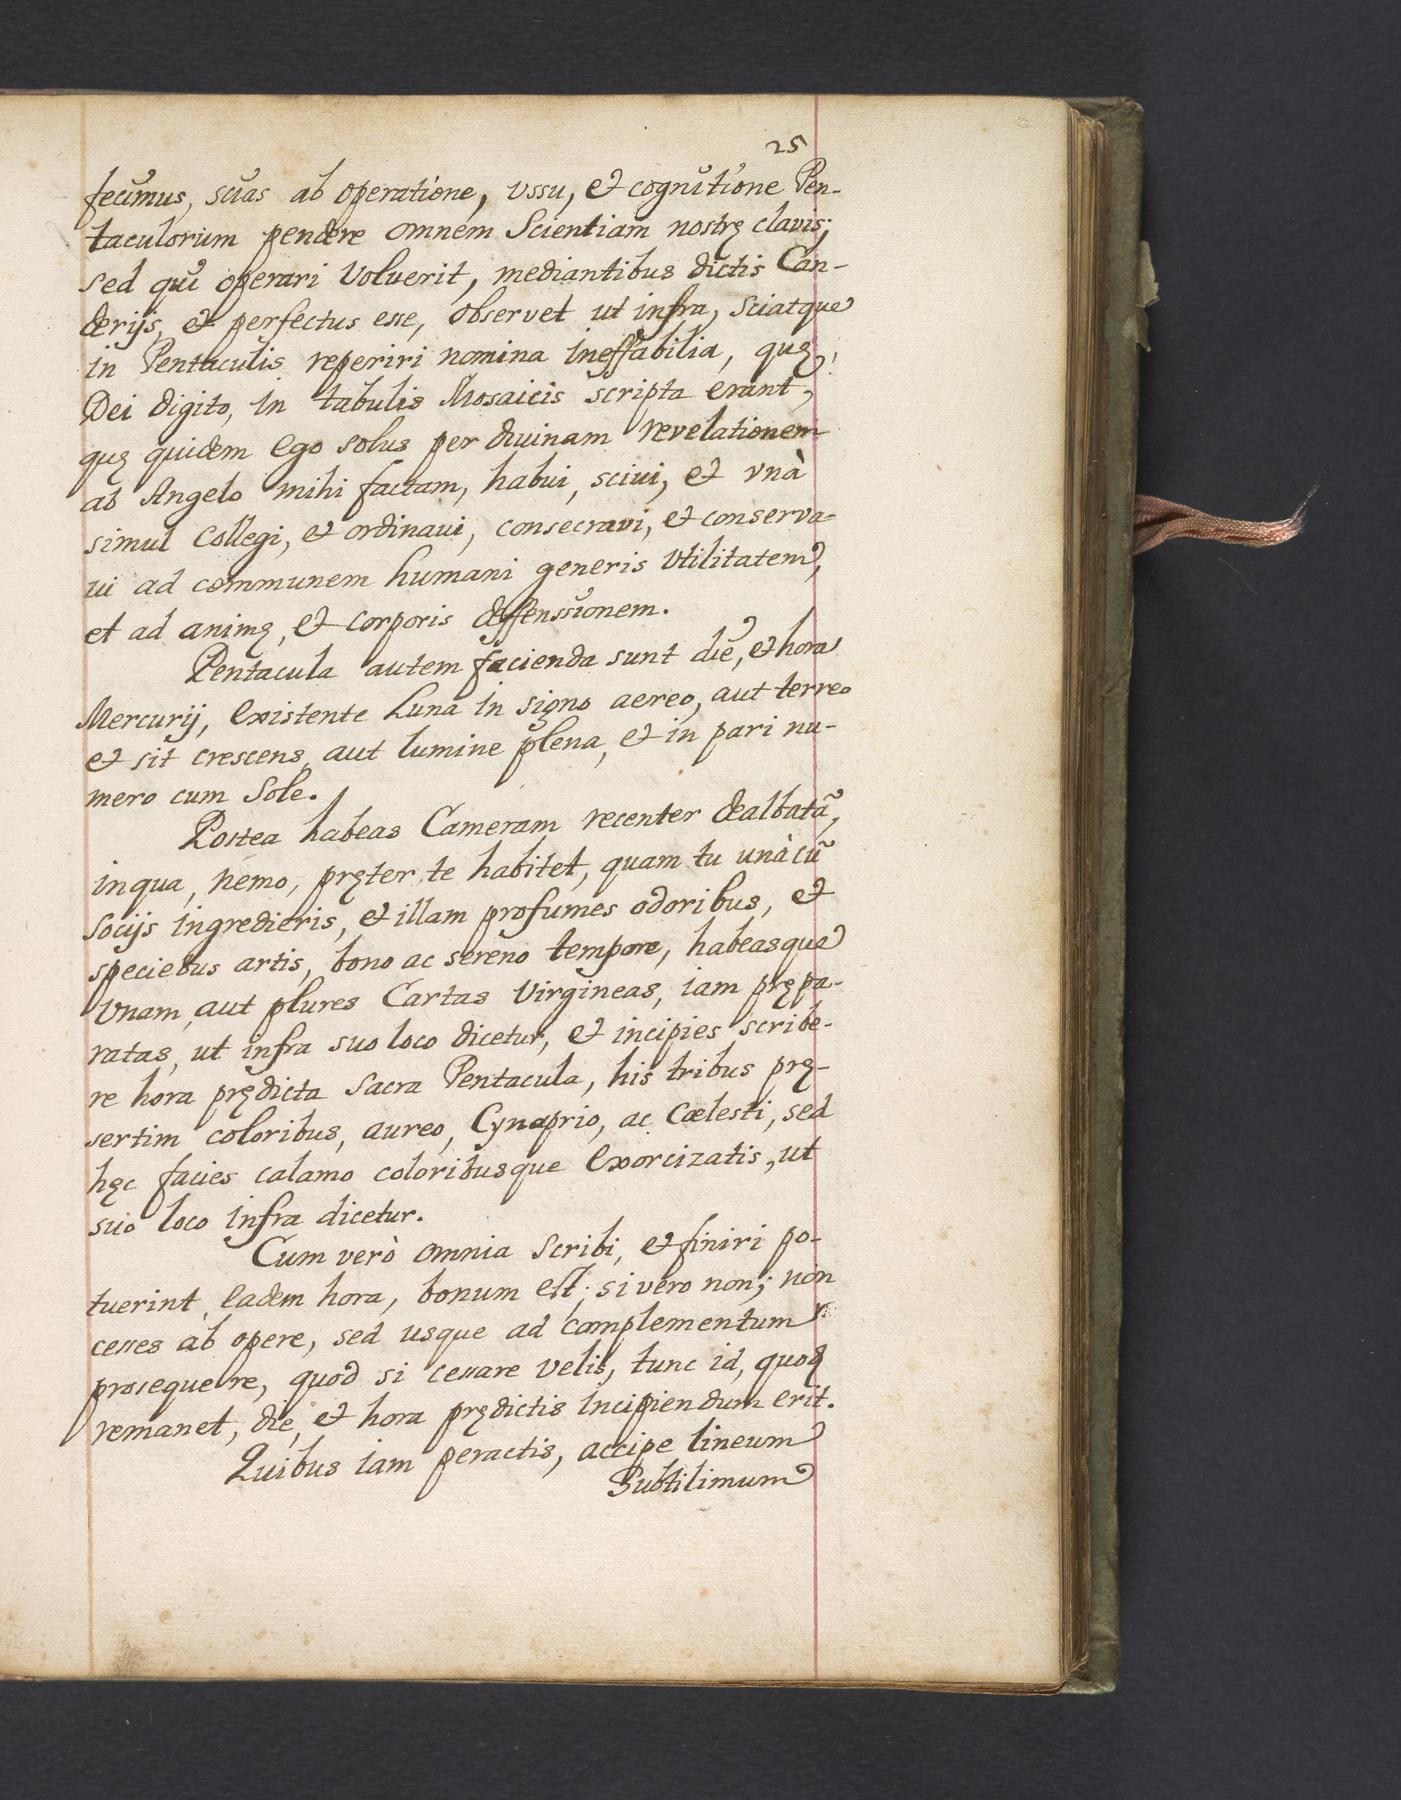 25
fecimus, scias ab operatione, vssu, et cognitione Pen-
taculorum pendere omnem Scientiam nostrę clavis;
sed qui operari Voluerit, mediantibus dictis Can-
derijs, et perfectus esse, observet ut infra, sciatque
in Pentaculis reperiri nomina ineffabilia, quę
Dei digito, in tabulis Mosaicis scripta erant,
quę quidem ego solus per divinam revelationem
ab Angelo mihi factam, habui, sciui, et vnà
simul Collegi, et ordinaui, consecravi, et conserva-
ui ad communem humani generis Vtilitatem,
et ad animę, et corporis deffenssionem.
Pentacula autem facienda sunt die, et hora
Mercurij, existente Luna in signo aereo, aut terreo
et sit crescens, aut lumine plena, et in pari nu-
mero cum Sole.
Postea habeas Cameram recenter dealbatã,
in qua, nemo, pręter te habitet, quam tu unà cũ
Socijs ingredieris, et illam profumes odoribus, et
speciebus artis, bono ac sereno tempore, habeasque
Vnam, aut plures Cartas Virgineas, iam prępa-
ratas, ut infra suo loco dicetur, et incipies scribe-
re hora prędicta Sacra Pentacula, his tribus prę-
sertim coloribus, aureo, Cynaprio, ac Cælesti, sed
hęc facies calamo coloribusque exorcizatis, ut
suo loco infra dicetur.
Cum verò omnia Scribi, et finiri po-
tuerint, eadem hora, bonum est; si vero non; non
cesses ab opere, sed usque ad complementum
prosequere, quod si cessare velis, tunc id, quod
remanet, die, et hora prędictis incipiendum erit.
Quibus iam peractis, accipe lineum
Subtilimum